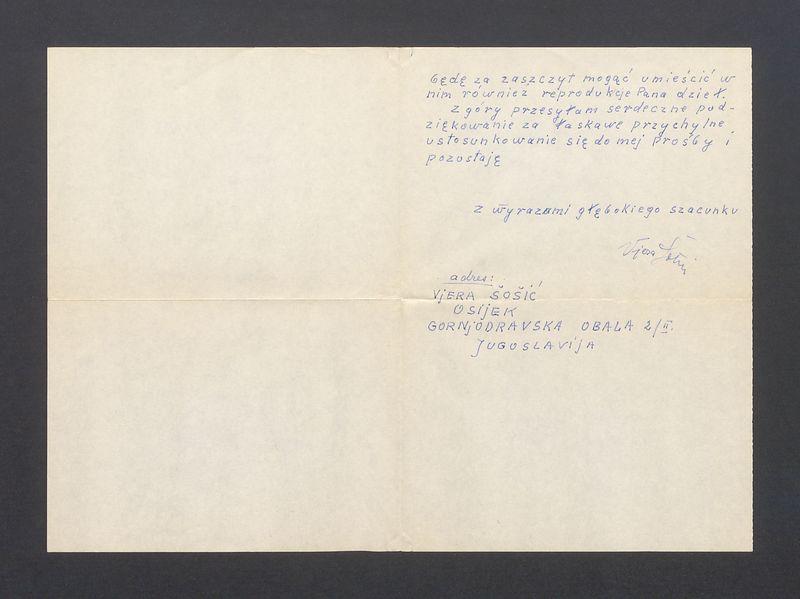 Będę za zaszczyt mogąć umieścić w
nim również reprodukcje Pana dzieł.
Z góry przesyłam serdeczne pod-
ziękowanie za łaskawe przychylne
ustosunkowanie się do mej prośby i
pozostaję
z wyrazami głębokiego szacunku
Vjera Šošić
adres:
VjERA ŠOŠIĆ
OSIjEK
GORNjODRAVSKA OBALA 2/II.
JUGOSLAVIjA